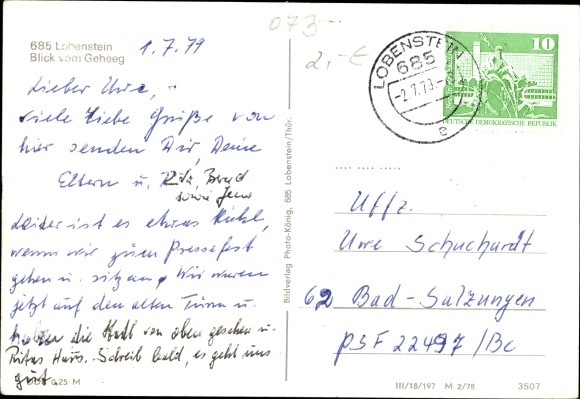 685 Lobenstein
Blick vom Geheeg
1.7.79
Lieber Uwe,
viele liebe Grüße von
hier senden Dir, Deine
Eltern u. Rita, Bernd
sowie Jens
Leider ist es etwas kühl,
wenn wir zum Pressefest
gehen u. sitzen. Wir waren
jetzt auf den alten Turm u.
haben die Stadt von oben gesehen u.
Ritas Haus. Schreib bald, es geht uns
gut.
0,25 M
Bildverlag Photo-König, 685 Lobenstein/Thür.
073-
2,-€
LOBENSTEIN
685
-2.7.79.-
e
10
DEUTSCHE DEMOKRATISCHE REPUBLIK
Uffz.
Uwe Schuchardt
62 Bad-Salzungen
PSF 22497/Bc
III/18/197 M 2/78 3507